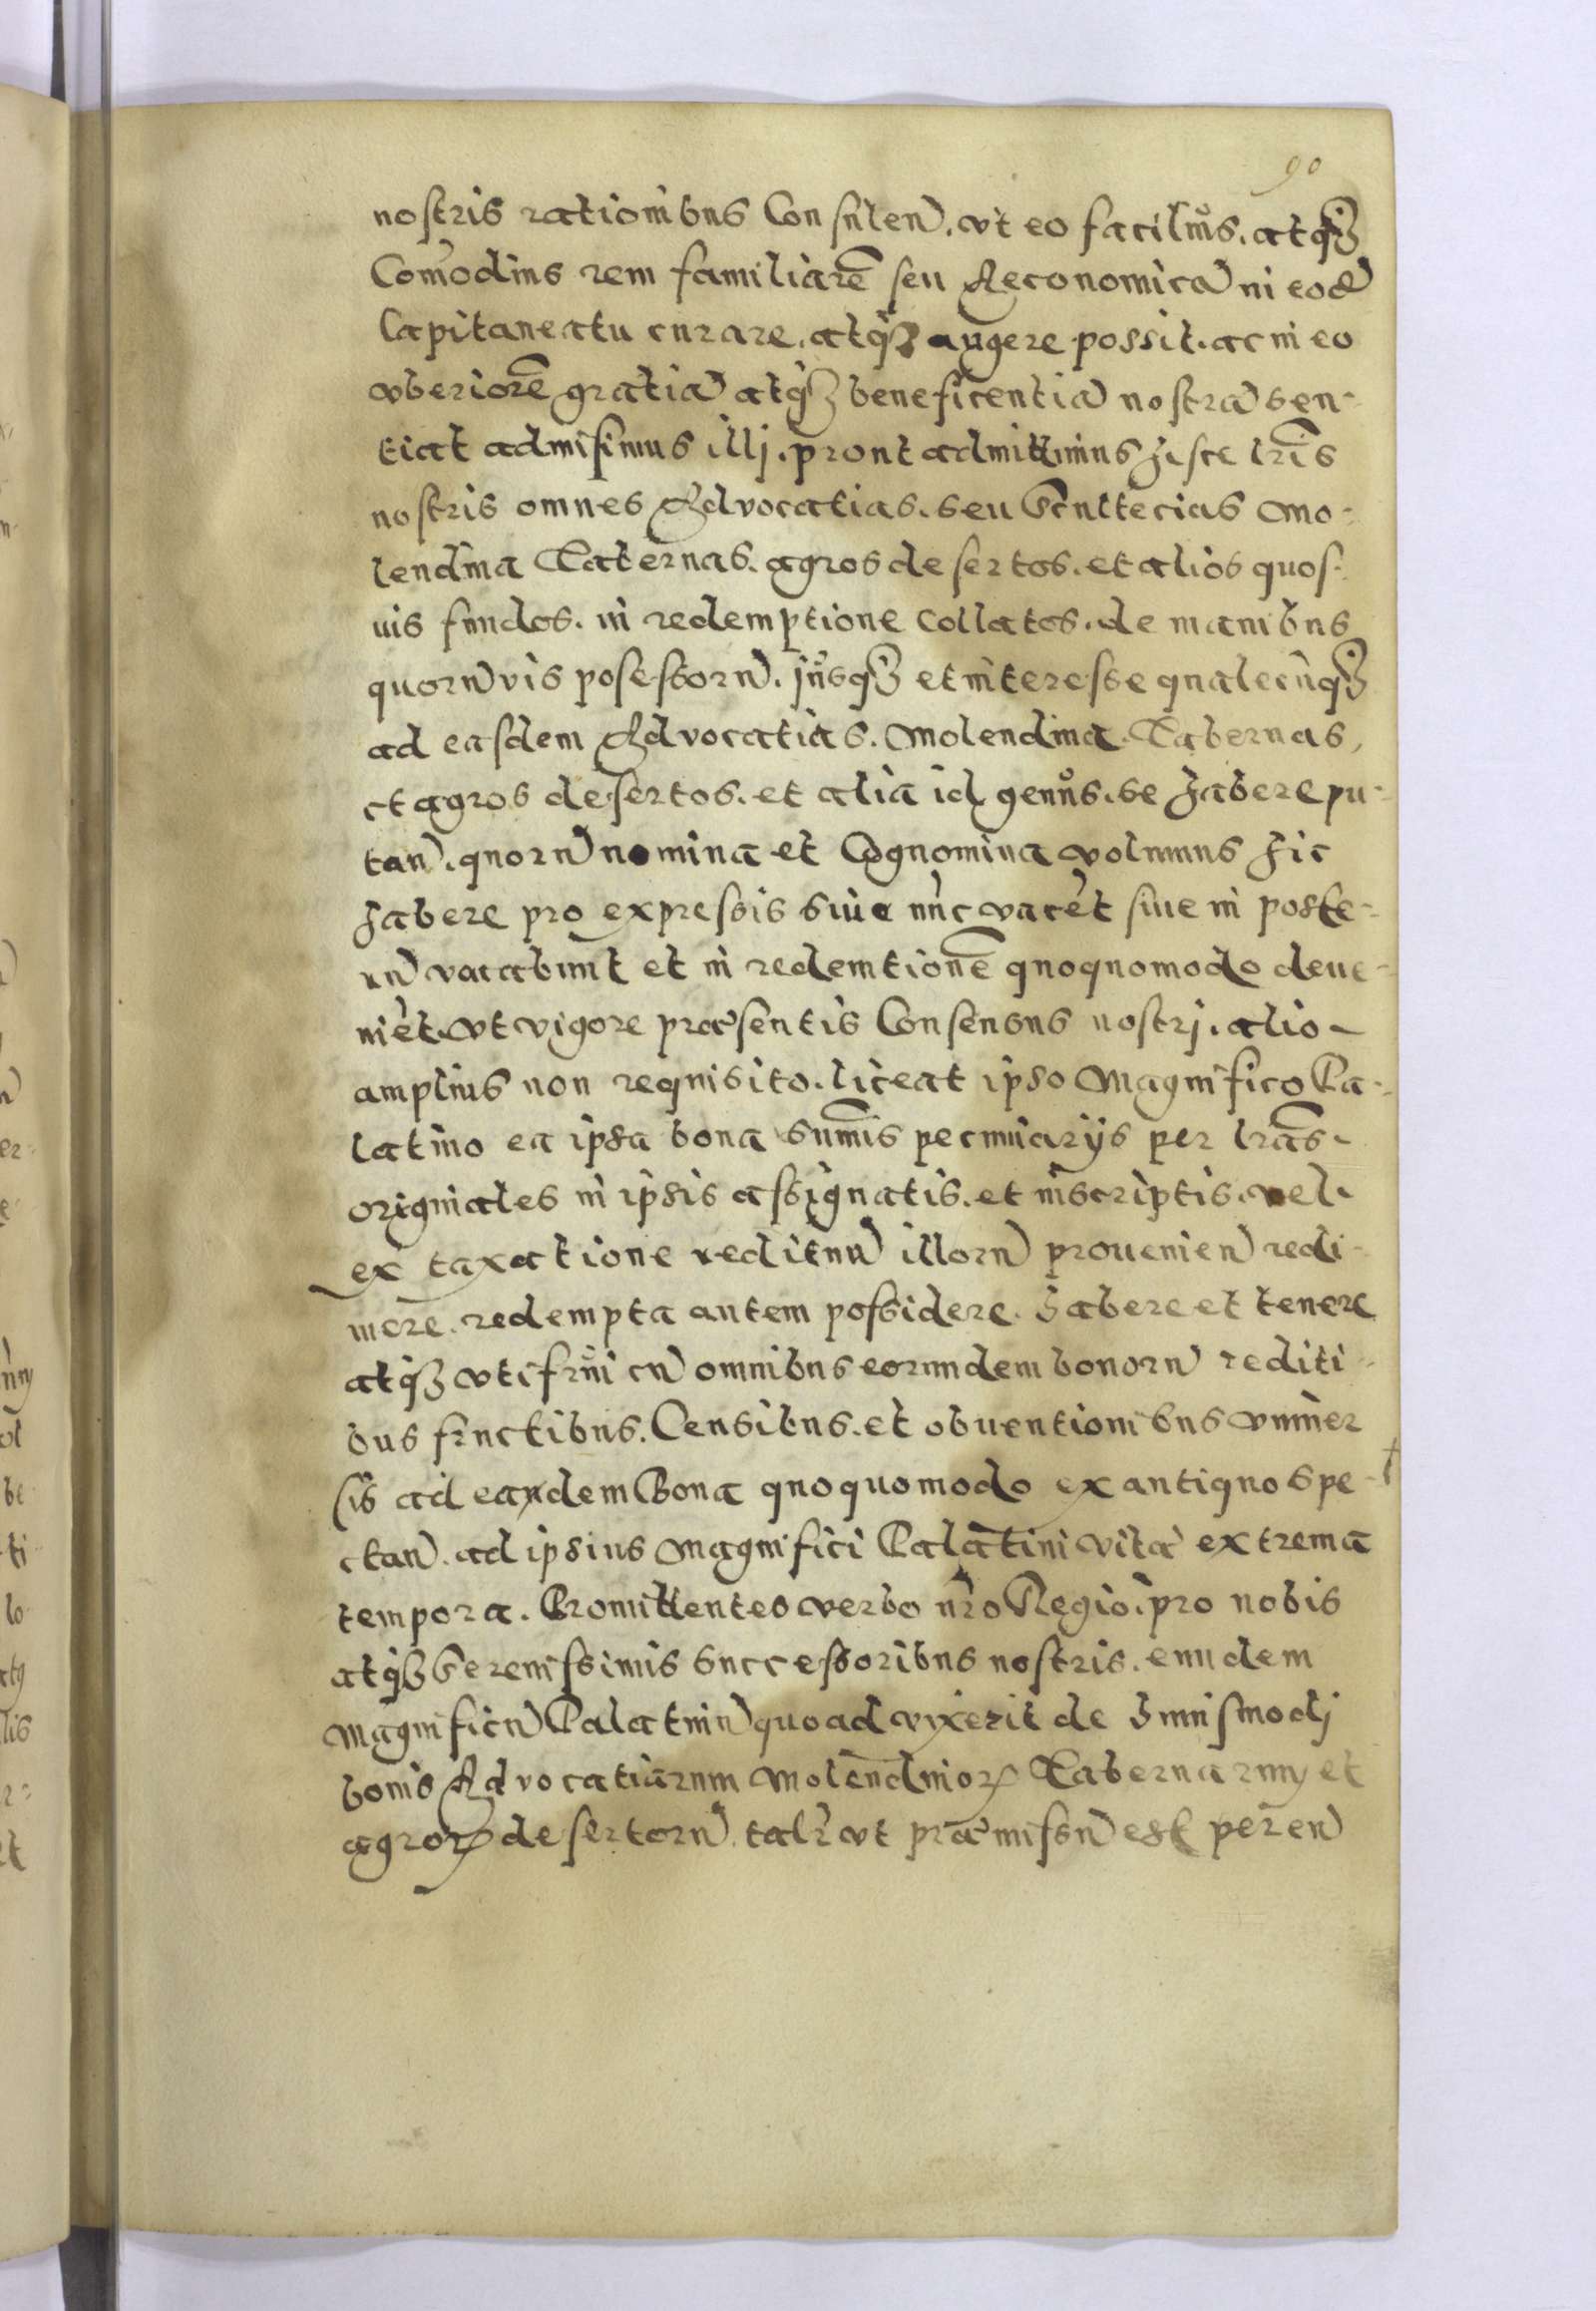 90
nostris rationibus Consulen̄. vt eo facilius. atq̄3
Com̄odius rem familiarē seu Aeconomicā in eodē
Capitaneatu curare. atq̄3 augere possit. ac in eo
vberiorē gratiā atq̄3 beneficentiā nostrā sen-
tiat admisimus illj. prout admittimus hisce lr̄is
nostris omnes Advocatias. seu Scultecias Mo-
lendina Tabernas. agros desertos. et alios quos-
uis fundos. in redemptione Collatos. de manibus
quorū vis possessorū. jusq̄3 et interesse qualecūq̄3
ad easdem Advocatias. Molendina. Tabernas,
et agros desertos. et alia id genus. se habere pu-
tan̄. quorū nomina et Cognomina volumus hic
habere pro expressis siue nūc vacēt siue in poste-
rū vacabunt et in redemtionē quoquomodo deue-
niēt. vt vigore præsentis Consensus nostrj. alio
amplius non requisito. liceat ipso Magnifico Pa-
latino ea ipsa bona sum̄is pecuniarijs per lrās
originales in ipsis assignatis. et inscriptis. vel
ex taxatione redituū illorū prouenien̄ redi-
mere. redempta autem possidere. habere et tenere
atq̄3 vtifrui cū omnibus eorundem bonorū rediti-
bus fructibus. Censibus. et obuentionibus vniuer
sis ad eandem Bona quoquomodo ex antiquo spe- †
ctan̄. ad ipsius Magnifici Palatini vitā extrema
tempora. Promittentes verbo nr̄o Regio. pro nobis
atq̄3 Serenissimis Successoribus nostris. eundem
Magnificū Palatinū quoad vixerit de huiusmodj
bonis Advocatiarum Molendinorꝝ Tabernarum et
agrorꝝ desertorū. talr̄ vt præmissū est per eū